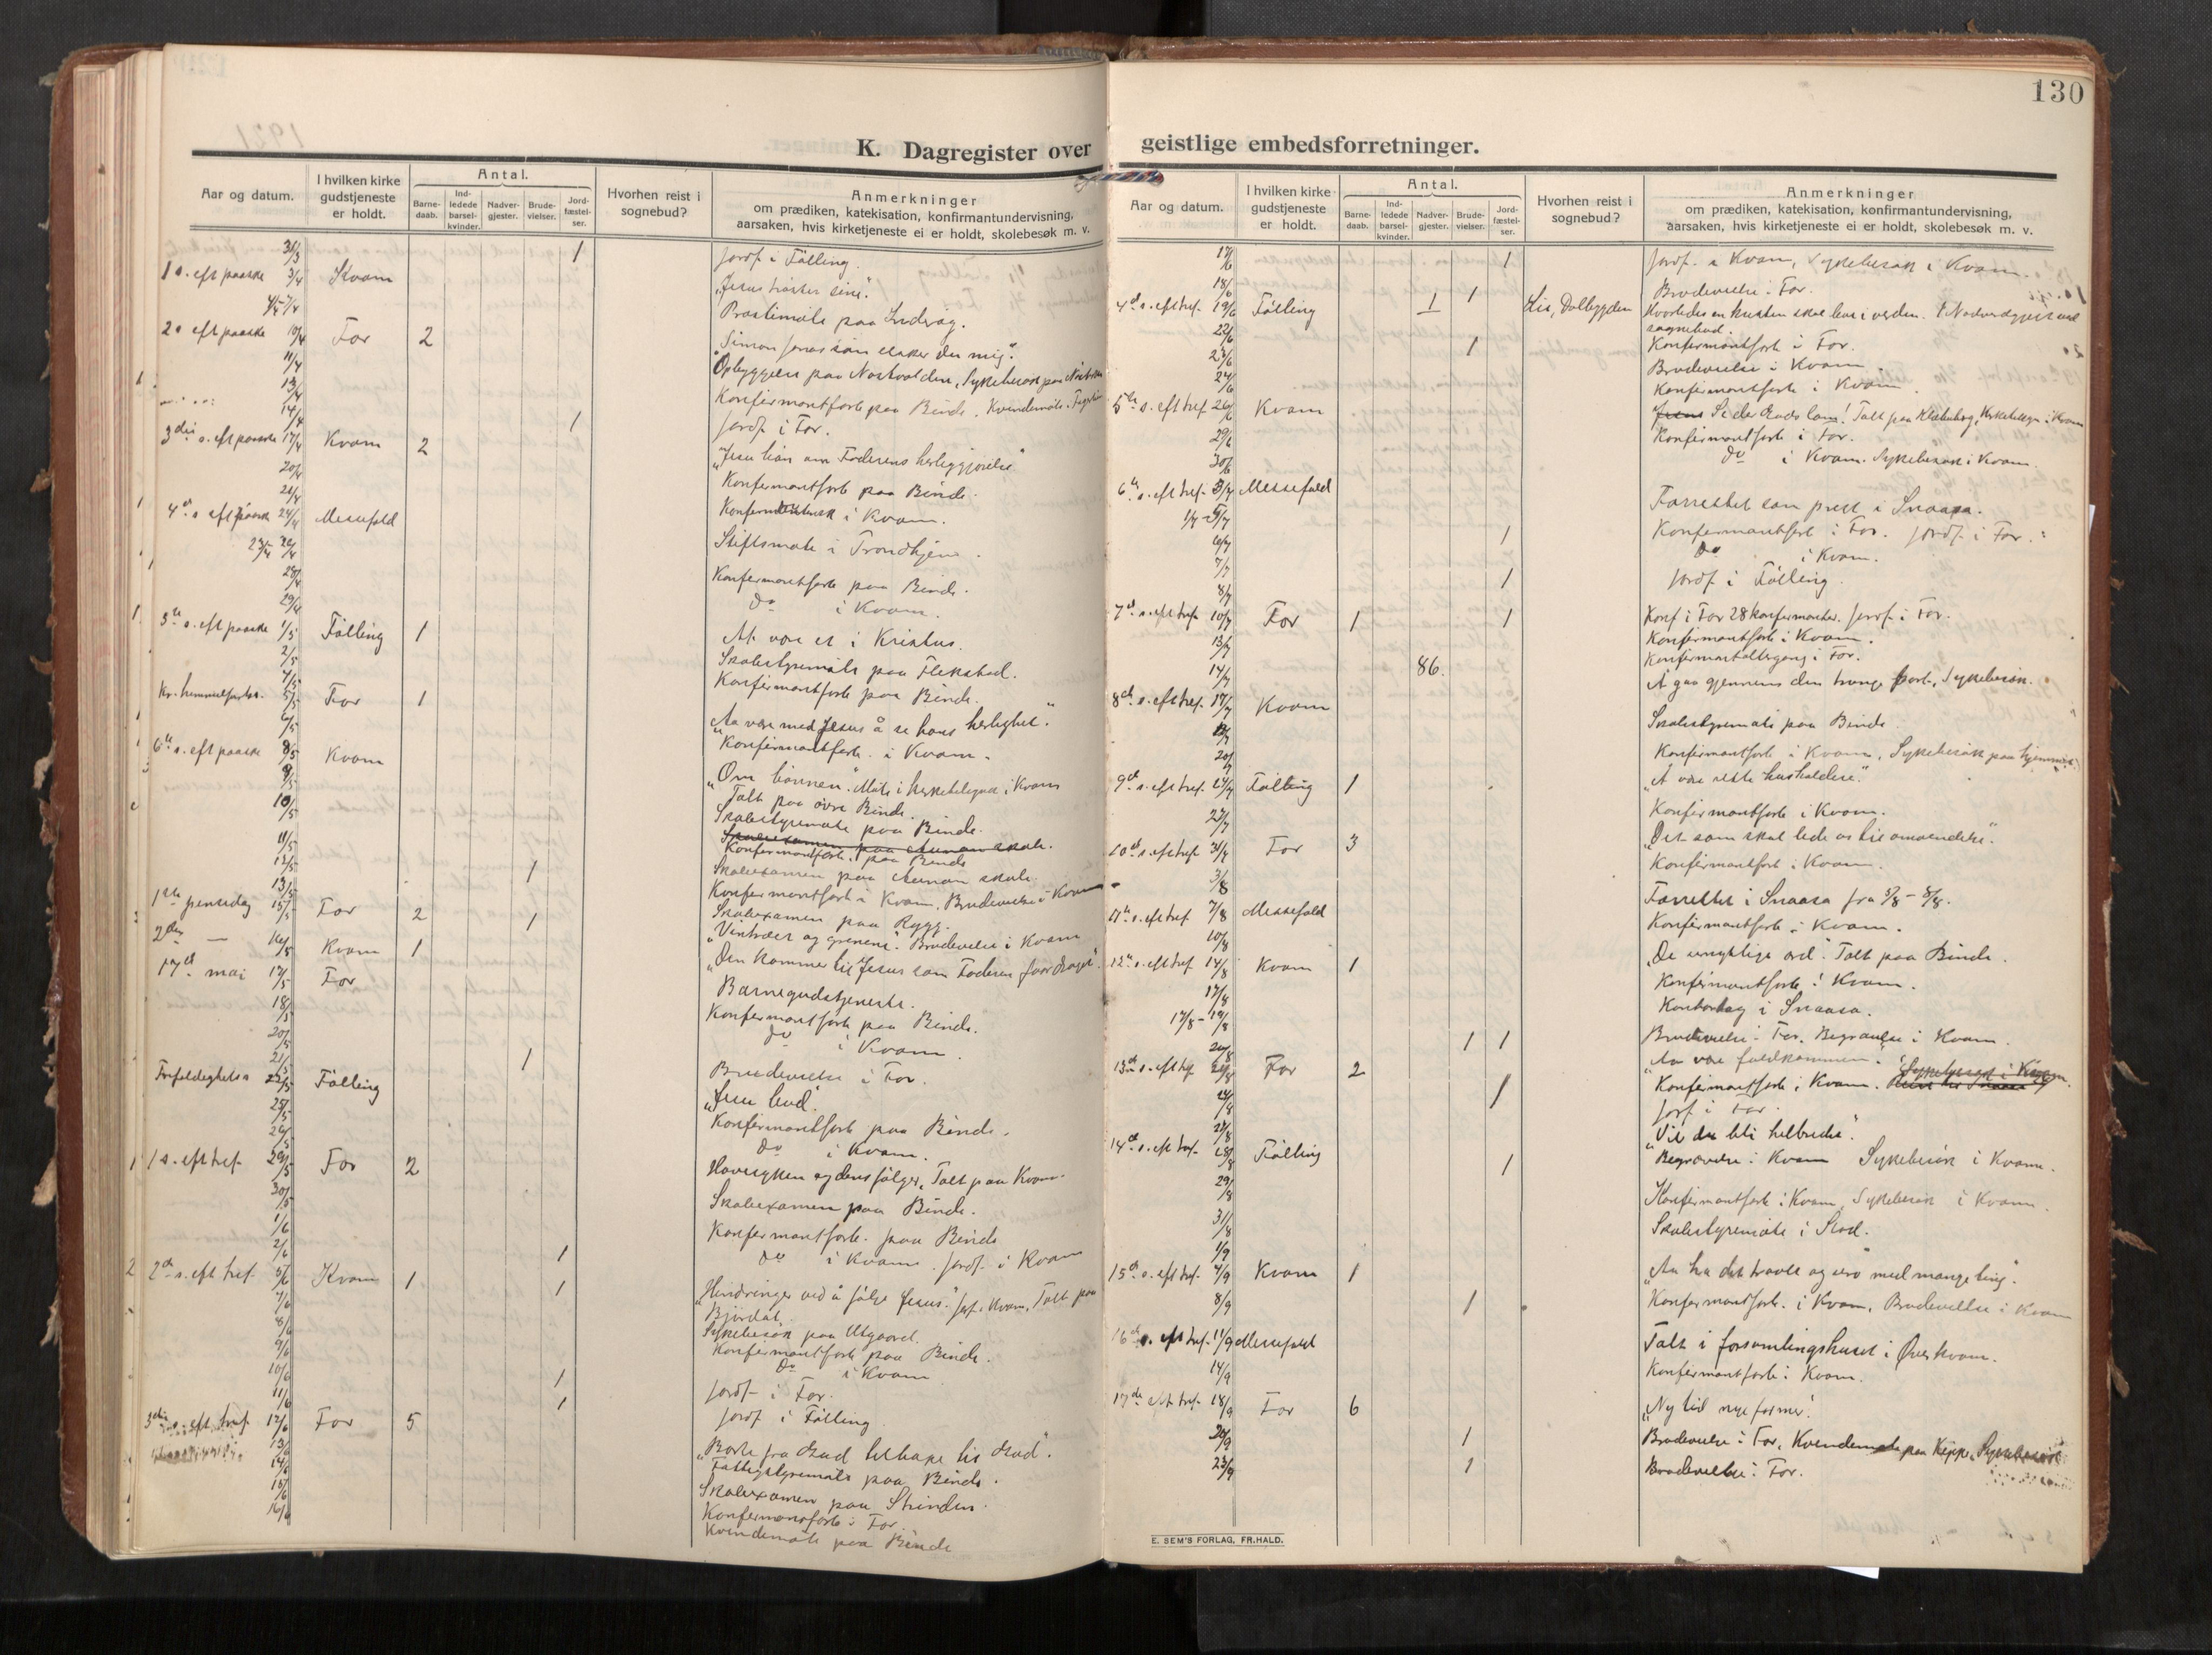 K. Dagregister over
Aar og datum.
I hvilken kirke gudstjeneste er holdt.
Antal.
Barne-daab.
Ind-ledede barsel-kvinder.
Nadver-gjester.
Brude-vielser.
Jord-fæstel-ser.
Hvorhen reist i sognebud?
Anmerkninger
om prædiken, katekisation, konfirmantundervisning,
aarsaken, hvis kirketjeneste ei er holdt, skolebesøk m. v.
31/3 1 Jordf. i Følling.
1 s. eft paaske 3/4 Kvam „Jesus trøster sine".
4/4-7/4 Prostimøte paa Inderøy.
2 s eft paaske 10/4 For 2 „Simon Jonas søn elsker du mig".
11/4 Opbyggelse paa
13/4 Konfirmantforb paa Binde. Kvindemøte i
14/4 1 Jordf i For.
3die s. eft paaske 17/4 Kvam 2 „Jesu bøn om Faderens herliggjørelse"
20/4 Konfirmantforb paa Binde.
21/4 i Kvam.
4de s eft paaske 24/4 Messefald
Stiftsmøte i Trondhjem.
28/4 Konfirmantforb paa Binde.
29/4 Do i Kvam.
5te s. eft paaske 1/5 Følling 1 At være et i Kristus.
2/5 Skolestyremøte paa Flekstad.
4/5 Konfirmantforb paa Binde.
Kr. himmelfartsd. 5/5 For 1 „Aa være med Jesus å se hans herlighet".
6/5 Konfirmantforb. i Kvam.
6te s. eft paaske 8/5 Kvam „Om bønnen". Møte i Kvam
9/5 Talt paa øvre Binde.
10/5 Skolestyremøte paa Binde.
Skoleexamen paa Aunan skole.
11/5 Konfirmantforb. paa Binde
12/5 Skoleexamen paa Aunan skole.
13/5 1 Konfirmantforb i Kvam. Brudevielse i Kvam
Skoleexamen paa Rygg.
1ste pinsedag 15/5 For 2 1 „Vintræet og grenene". Brudevielse i Kvam
2den — 16/5 Kvam 1 „Den kommer til Jesus som Faderen faar draget".
17de mai 17/5 For Barnegudstjeneste.
18/5 Konfirmantforb paa Binde.
20/5 Do i Kvam.
21/5 1 Brudevielse i For.
Trefoldighets s 22/5 Følling „Jesu bud".
25/5 Konfirmantforb paa Binde.
26/5 Do i Kvam.
1 s. eft tref. 29/5 For 2 Havesyken og dens følger, Talt paa Kvam.
30/5 Skoleexamen paa Binde.
1/6 Konfirmantforb. paa Binde
2/6 1 Do i Kvam. Jordf. i Kvam
2den s. eft tref. 5/6 Kvam 1 1 „Hindringer ved å følge Jesus". Jorf. i Kvam, Talt paa
7/6 Bjørdal.
8/6 Sykebesøk paa Utgaard.
Konfirmantforb paa Binde.
9/6 Do i Kvam
10/6 1 Jordf. i For.
11/6 1 Jordf i Følling
3die s. eft. tref. 12/6 For 5 „Borte fra Gud tilbake til Gud".
13/6 Fattigstyremøte paa Binde.
14/6 Skoleexamen paa Strinden.
15/6 Konfirmantforb i For.
16/6 Kvindemøte paa Binde
130
geistlige embedsforretninger.
Aar og datum.
I hvilken kirke gudstjeneste er holdt.
Antal.
Barne-daab.
Ind-ledede barsel-kvinder.
Nadver-gjester.
Brude-vielser.
Jord-fæstel-ser.
Hvorhen reist i sognebud?
Anmerkninger
om prædiken, katekisation, konfirmantundervisning,
aarsaken, hvis kirketjeneste ei er holdt, skolebesøk m. v.
17/6 1 Jordf. i Kvam, Sykebesøk i Kvam.
18/6 1 Brudevielse i For.
4de s. eft tref. 19/6 Følling 1 Lis, Dalbygden Hvorledes en kristen skal leve i verden. 1 Nadvergjest ved sognebud.
22/6 Konfirmantforb i For.
23/6 1 Brudevielse i Kvam.
24/6 Konfirmantforb i Kvam.
5te s. eft tref. 26/6 Kvam Se det Guds lam! Talt paa i Kvam
29/6 Konfirmantforb i For.
30/6 Do i Kvam. Sykebesøk i Kvam.
6te s. eft tref. 3/7 Messefald
1/7-5/7 Forrettet som prest i Snaasa.
6/7 1 Konfirmantforb i For. Jordf. i For.
7/7 Do i Kvam.
8/7 1 Jordf i Følling.
7de s. eft tref. 10/7 For 1 1 Konf i For 28 konfirmanter. Jordf. i For.
13/7 Konfirmantforb i Kvam.
14/7 86. Konfirmantaltergang i For.
8de s. eft tref. 17/7 Kvam At gaa gjennem den trange port. Sykebesøk.
Skolestyremøte paa Binde.
20/7 Konfirmantforb i Kvam, Sykebesøk paa
9de s. eft tref. 24/7 Følling 1 „At være rette husholdere".
27/7 Konfirmantforb i Kvam.
10de s. eft tref. 31/7 For 3 „Det som skal lede os til omvendelse".
3/8 Konfirmantforb i Kvam.
11te s. eft tref 7/8 Messefald Forrettet i Snaasa fra 5/8-8/8.
10/8 Konfirmantforb i Kvam.
12te s. eft tref 14/8 Kvam 1 „De unyttige ord". Talt paa Binde.
17/8 Konfirmantforb i Kvam.
17/8-19/8 Kontordag i Snaasa.
20/8 1 1 Brudevielse i For. Begravelse i Kvam.
13de s. eft tref 21/8 For 2 „Aa være fuldkommen". Sykebesøk i Kvam.
24/8 Konfirmantforb. i Kvam.
1 Jorf i For.
14de s. eft tref. 28/8 Følling „Vil du bli helbredet".
29/8 1 Begravelse i Kvam Sykebesøk i Kvam.
31/8 Konfirmantforb i Kvam, Sykebesøk i Kvam.
1/9 Skolestyremøte i Stod.
15de s. eft tref. 4/9 Kvam 1 „Aa ha det travlt og uro med mange ting".
8/9 1 Konfirmantforb. i Kvam, Brudevielse i Kvam
16de s. eft tref. 11/9 Messefald Talt i forsamlingshuset i Øver Kvam.
14/9 Konfirmantforb i Kvam.
17de eft tref. 18/9 For 6 „Ny tid nye former".
20/9 1 Brudevielse i For, Kvindemøte paa Kipp, Sykebesøk
23/9 1 Brudevielse i For.
E. SEM'S FORLAG, FR.HALD.